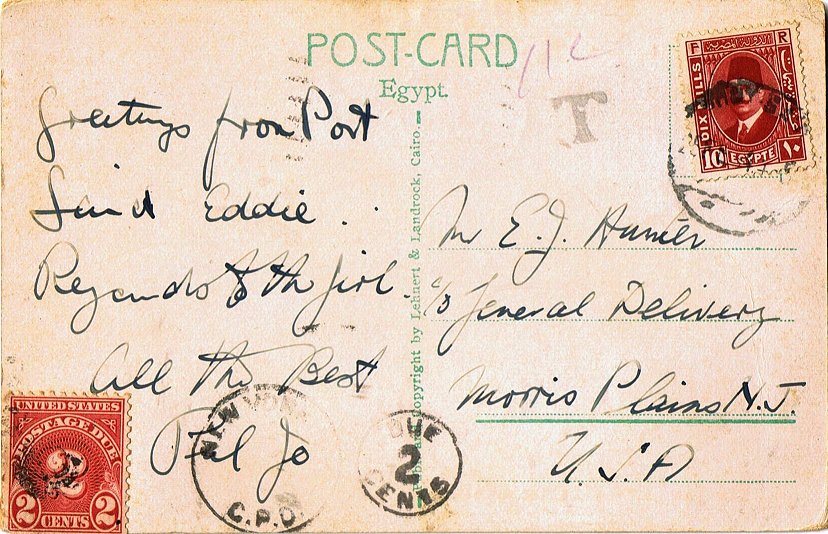 POST-CARD
Egypt.
Greetings from Port
Said Eddie..
Regards to the girl.
All the Best
Phil Jo
Mr E.J. Hunter
c/o General Delivery
Morris Plains N.J.
U.S.A
Copyright by Lehnert & Landrock, Cairo.
T
112
F R
DIX MILLS
10 EGYPTE ١٠
UNITED STATES
POSTAGE DUE
2
2 CENTS 2
NEW YORK
G.P.O.
DUE
2
CENTS